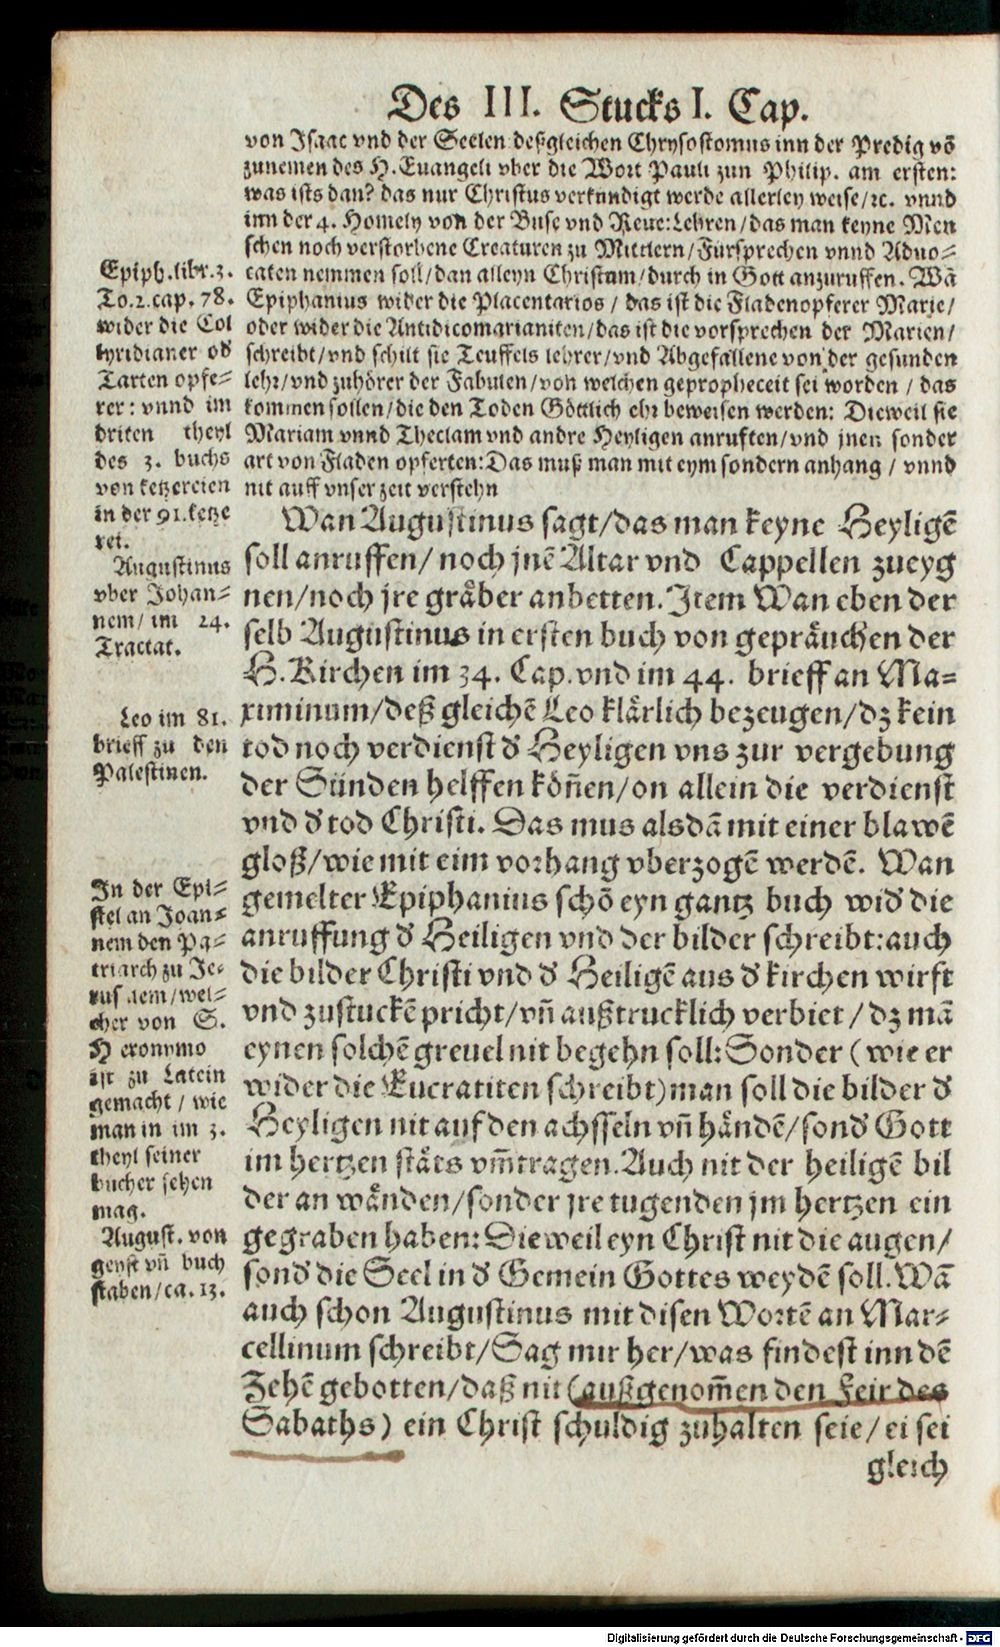 Des III. Stucks I. Cap.
von Isaac vnd der Seelen deßgleichen Chrysostomus inn der Predig võ
zunemen des H. Euangeli vber die Wort Pauli zun Philip. am ersten:
was ists dan? das nur Christus verkundigt werde allerley weise/ ꝛc. vnnd
inn der 4. Homely von der Buse vnd Reue: Lehren/ das man keyne Men
schen noch verstorbene Creaturen zu Mittlern/ Fürsprechen vnnd Aduo-
caten nemmen soll/ dan alleyn Christum/ durch in Gott anzuruffen. Wã
Epiphanius wider die Placentarios/ das ist die Fladenopferer Marie/
oder wider die Antidicomarianiten/ das ist die vorsprechen der Marien/
schreibt/ vnd schilt sie Teuffels lehrer/ vnd Abgefallene von der gesunden
lehr/ vnd zuhörer der Fabulen/ von welchen gepropheceit sei worden/ das
kommen sollen/ die den Toden Göttlich ehr beweisen werden: Dieweil sie
Mariam vnnd Theclam vnd andre Heyligen anruften/ vnd jnen sonder
art von Fladen opferten: Das muß man mit eym sondern anhang/ vnnd
nit auff vnser zeit verstehn
Epiph. libr. 3.
To. 2. cap. 78.
wider die Col
lyridianer od
Tarten opfe-
rer: vnnd im
driten theyl
des 3. buchs
von ketzereien
in der 91. ketze
rei.
Wan Augustinus sagt/ das man keyne Heyligẽ
soll anruffen/ noch jnẽ Altar vnd Cappellen zueyg
nen/ noch jre gräber anbetten. Item Wan eben der
selb Augustinus in ersten buch von gepräuchen der
H. Kirchen im 34. Cap. vnd im 44. brieff an Ma-
ximinum/ deß gleichẽ Leo klärlich bezeugen/ dz kein
tod noch verdienst d̕ Heyligen vns zur vergebung
der Sünden helffen köñen/ on allein die verdienst
vnd d̕ tod Christi. Das mus alsdã mit einer blawẽ
gloß/ wie mit eim vorhang vberzogẽ werdẽ. Wan
gemelter Epiphanius schõ eyn gantz buch wid̕ die
anruffung d̕ Heiligen vnd der bilder schreibt: auch
die bilder Christi vnd d̕ Heiligẽ aus d̕ kirchen wirft
vnd zustuckẽ pricht/ vñ außtrucklich verbiet/ dz mã
eynen solchẽ greuel nit begehn soll: Sonder (wie er
wider die Eucratiten schreibt) man soll die bilder d̕
Heyligen nit auf den achsseln vñ händẽ/ sond̕ Gott
im hertzen stäts vm̃tragen. Auch nit der heiligẽ bil
der an wänden/ sonder jre tugenden jm hertzen ein
gegraben haben: Dieweil eyn Christ nit die augen/
sond̕ die Seel in d̕ Gemein Gottes weydẽ soll. Wã
auch schon Augustinus mit disen Wortẽ an Mar-
cellinum schreibt/ Sag mir her/ was findest inn dẽ
Zehẽ gebotten/ daß nit (außgenom̃en den Feir des
Sabaths) ein Christ schuldig zuhalten seie/ ei sei
gleich
Augustinus
vber Johan-
nem/ im 24.
Tractat.
Leo im 81.
brieff zu den
Palestinen.
In der Epi-
stel an Joan-
nem den Pa-
triarch zu Je-
rusalem/ wel-
cher von S.
Heronymo
ist zu Latein
gemacht/ wie
man in im 3.
theyl seiner
bücher sehen
mag.
August. von
geyst vñ buch
staben/ ca. 13.
Digitalisierung gefördert durch die Deutsche Forschungsgemeinschaft - DFG